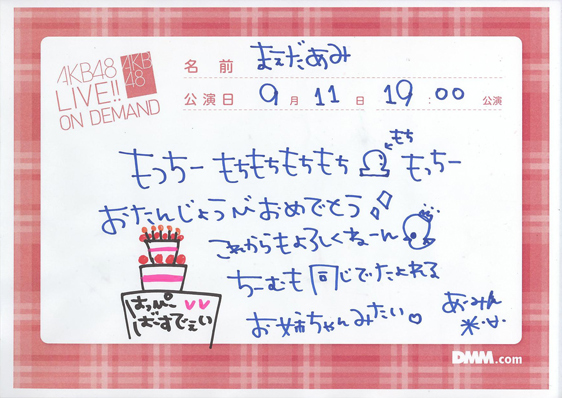 AKB48
LIVE!!
ON DEMAND
AKB
48
名 前 まえだあみ
公演日 9月11日 19:00 公演
もち
もっちー もちもちもちもち もっちー
おたんじょうびおめでとう
これからもよろしくねーん
ちーむも同じでたよれる
お姉ちゃんみたい
あーみん
はっぴー
ばーすでぇい
DMM.com